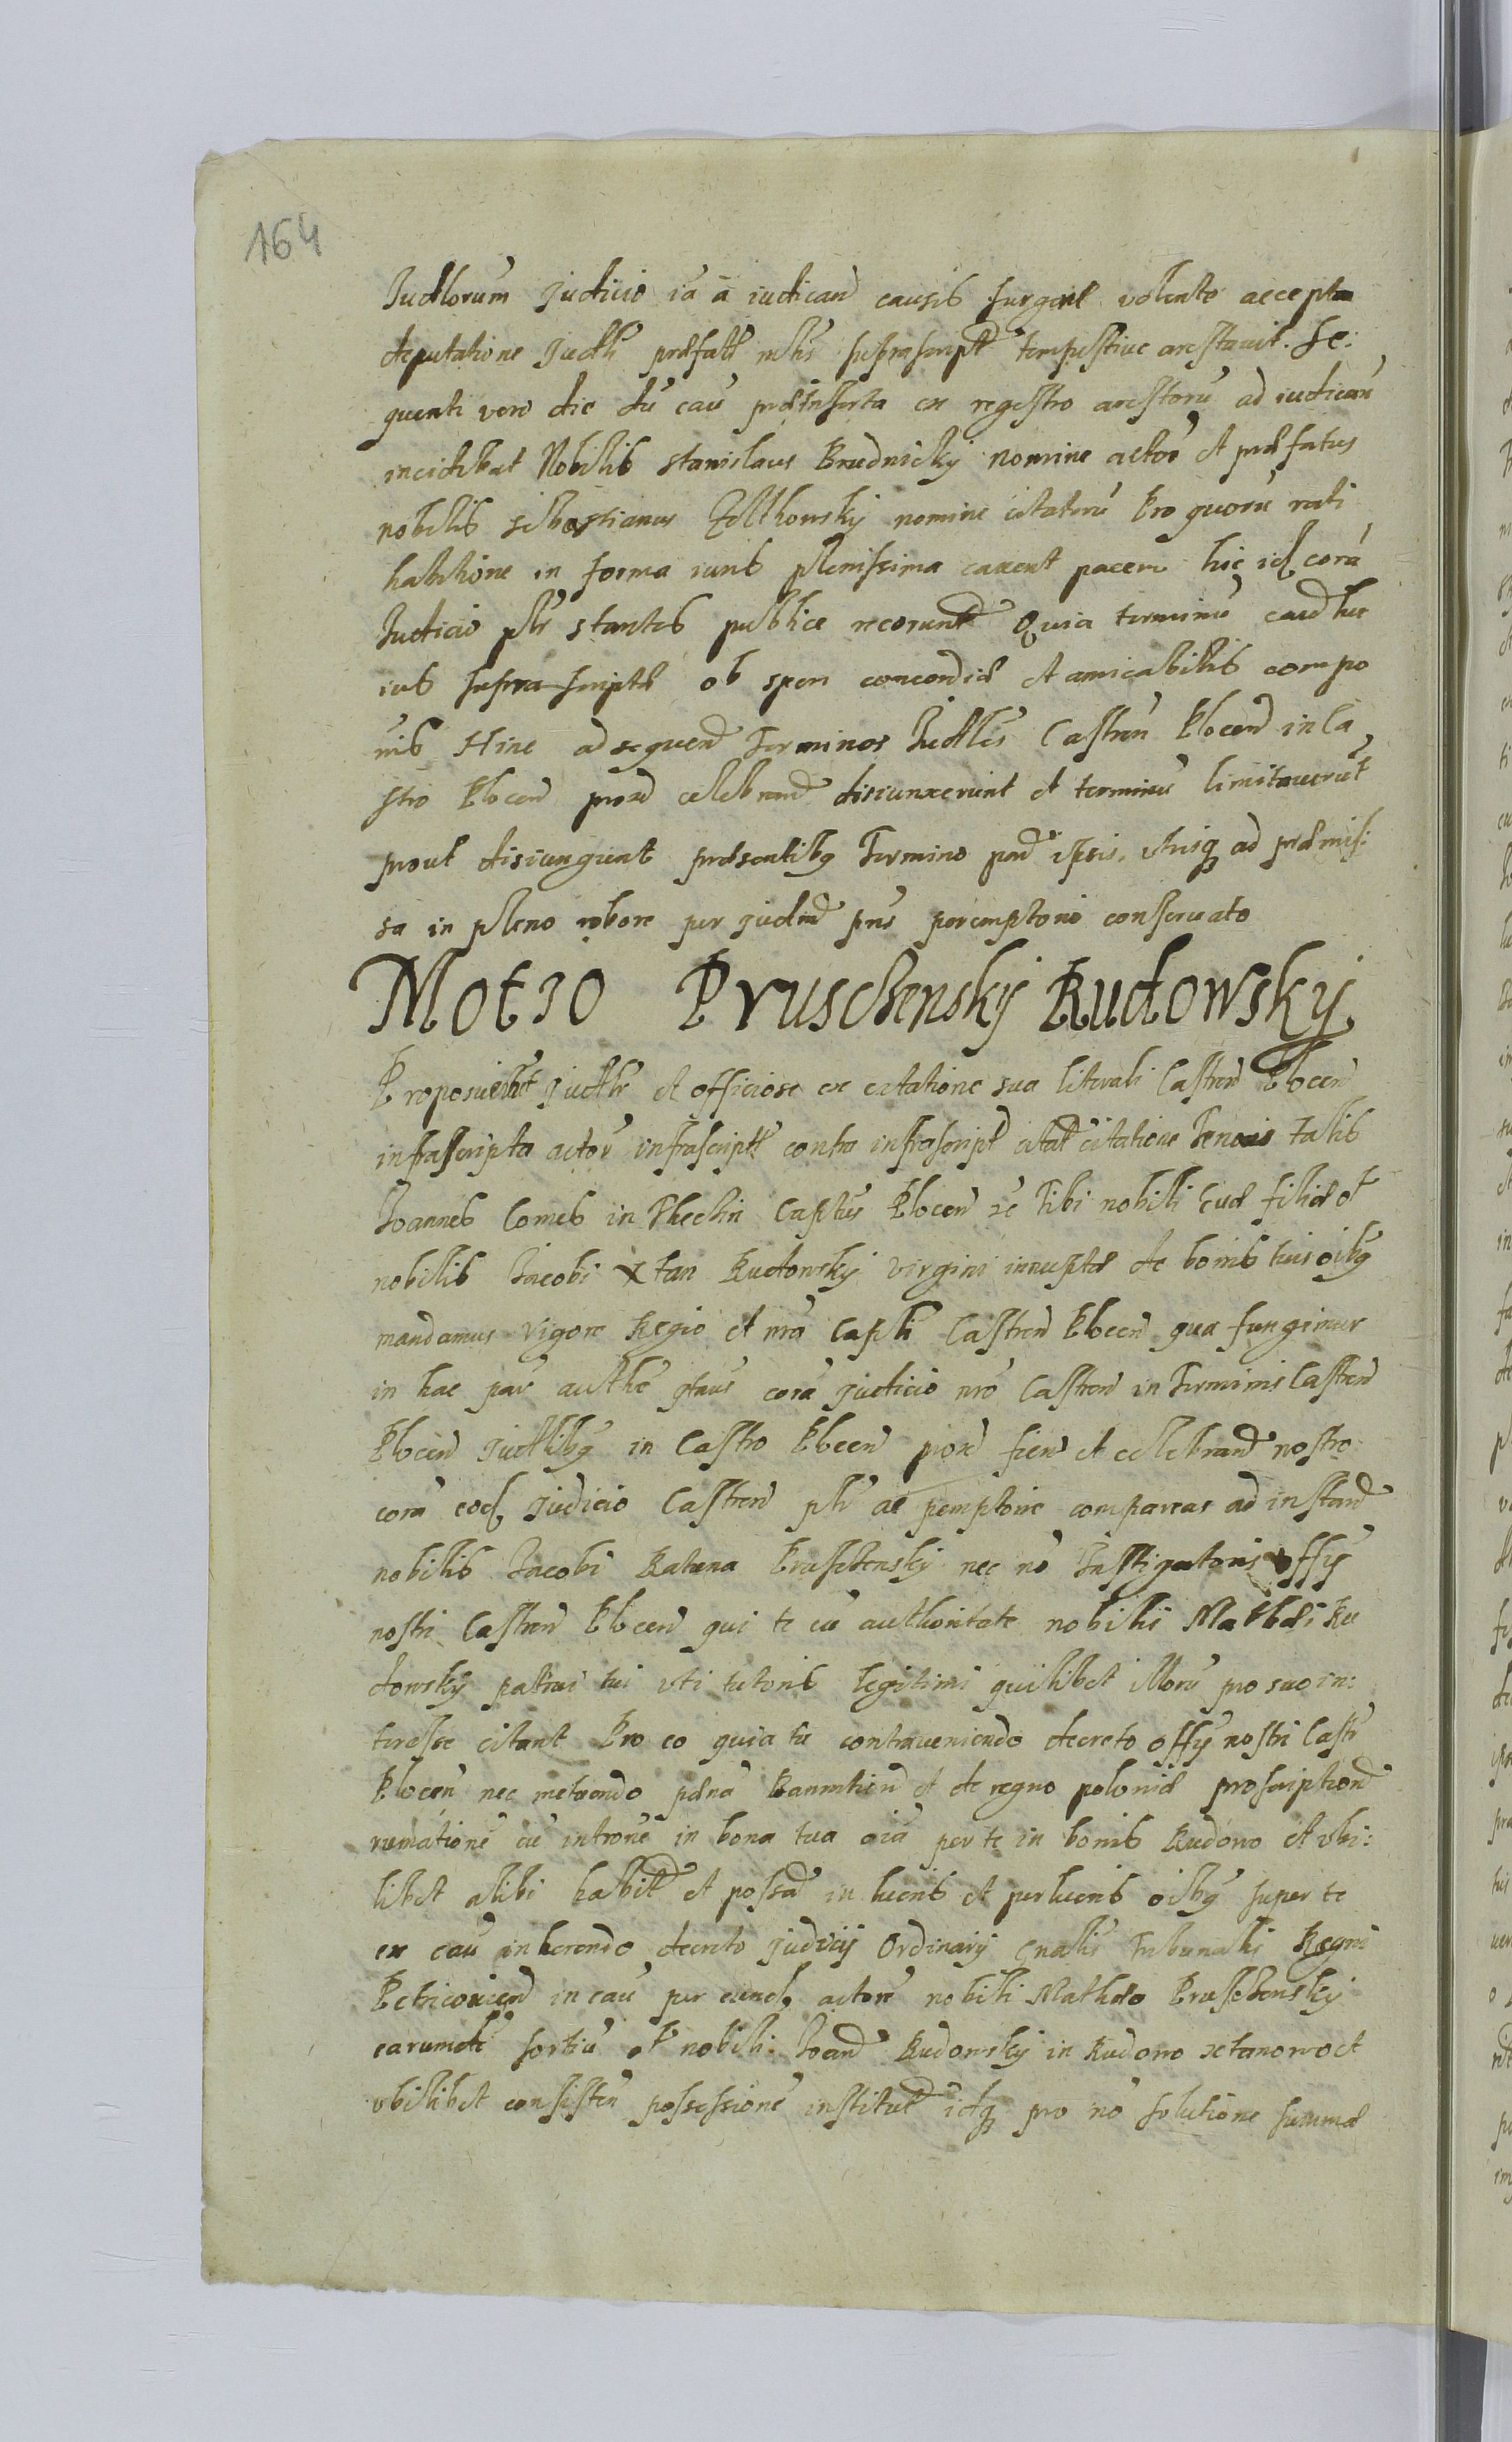 164
Judlorum Judicio iā ā iudicand causis surgere volente accepta
deputatione Judlr præfatæ mltis suprascript tempestive arestavit. Se:
quenti vero die dū cau præinserta ex regestro arestorū ad iudicanū
incidebat Nobilis Stanislaus Brudnicky nomine actor et præfatus
nobilis Sebastianus Zelkowsky nomine citatorū Pro quorū rati
habitione in forma iuris plenissima cavent pacem hic id cora
Judicio plr stantes publice recorunt Quia terminū caud hu
ius suprascriptæ ob spem concordiæ et amicabilis compo
nis Hinc ad sequend Terminos Judles Castren Plocen in Ca
stro Plocen prox celebrand disiunxerunt et terminū limitaverūt
prout disiungunt præsentibq Termino pnd ipsis utrisq ad præmis:
sa in pleno robore per Judicd pns peremptorie conservato
Motio Pruschensky Rudowsky
Proposuerūt Judlr et officiose ex citatione sua literali Castren Plocen
infrascripta actor infrascriptæ contra infrascript citat citatione Tenoris Talis
Joannes Comes in Thechin Captus Plocen &c Tibi nobili Evæ filiæ ol
nobilis Jacobi Xtan Rudowsky virgini innuptæ de bonis tuis oibq
mandamus vigore Regio et nrā Capli Castren Plocen qua fungimur
in hac par authe qtaus corā Judicio nrō Castren in Terminis Castren
Plocen Judlibq in Castro Plocen prox fien et celebrand nostro
corā eod Judicio Castren plr ac pemptorie compareas ad instand
nobilis Jacobi Katana Pruschensky nec nō Instigatoris offy
nostri Castren Plocen qui te cū authoritate nobilis Mathæi Ru
dowsky patrui tui uti tutoris legitimi quilibet illorū pro suo in:
teresse citant Pro eo quia tu contraveniendo decreto offy nostri Castr
Plocen nec metuendo pænā Bannition et de regno poloniæ proscription
rumationē cū intronē in bona tua oīa per te in bonis Rudowo et ubi:
libet alibi habit et possd in lucris et perlucris oibq super te
ex cau inherendo decreto Judicij Ordinarij Gnalis Tribunalis Regni
Petricovien in cau per eund actorē nobili Mathæo Pruschensky
earumdē sortiū ol nobilis Joand Rudowsky in Rudowo xtanowo et
ubilibet consisten possessionē institut idq pro nō solutione summæ